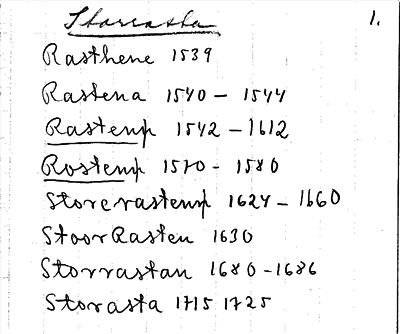 Storrasta 1.
Rasthene 1539
Rastena 1540 - 1544
Rastenn 1542 - 1612
Rostenn 1570 - 1580
Storerastenn 1624 - 1660
StoorRasten 1630
Storrastan 1680 - 1686
Storasta 1715 1725